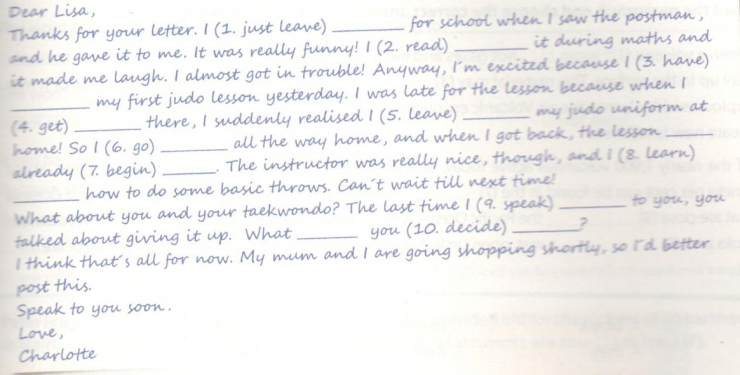 Dear Lisa,
Thanks for your letter. I (1. just leave) __________ for school when I saw the postman,
and he gave it to me. It was really funny! I (2. read) __________ it during maths and
it made me laugh. I almost got in trouble! Anyway, I'm excited because I (3. have)
__________ my first judo lesson yesterday. I was late for the lesson because when I
(4. get) __________ there, I suddenly realised I (5. leave) __________ my judo uniform at
home! So I (6. go) __________ all the way home, and when I got back, the lesson ______
already (7. begin) ________. The instructor was really nice, though, and I (8. learn)
________ how to do some basic throws. Can't wait till next time!
What about you and your taekwondo? The last time I (9. speak) __________ to you, you
talked about giving it up. What ________ you (10. decide) __________?
I think that's all for now. My mum and I are going shopping shortly, so I'd better
post this.
Speak to you soon.
Love,
Charlotte